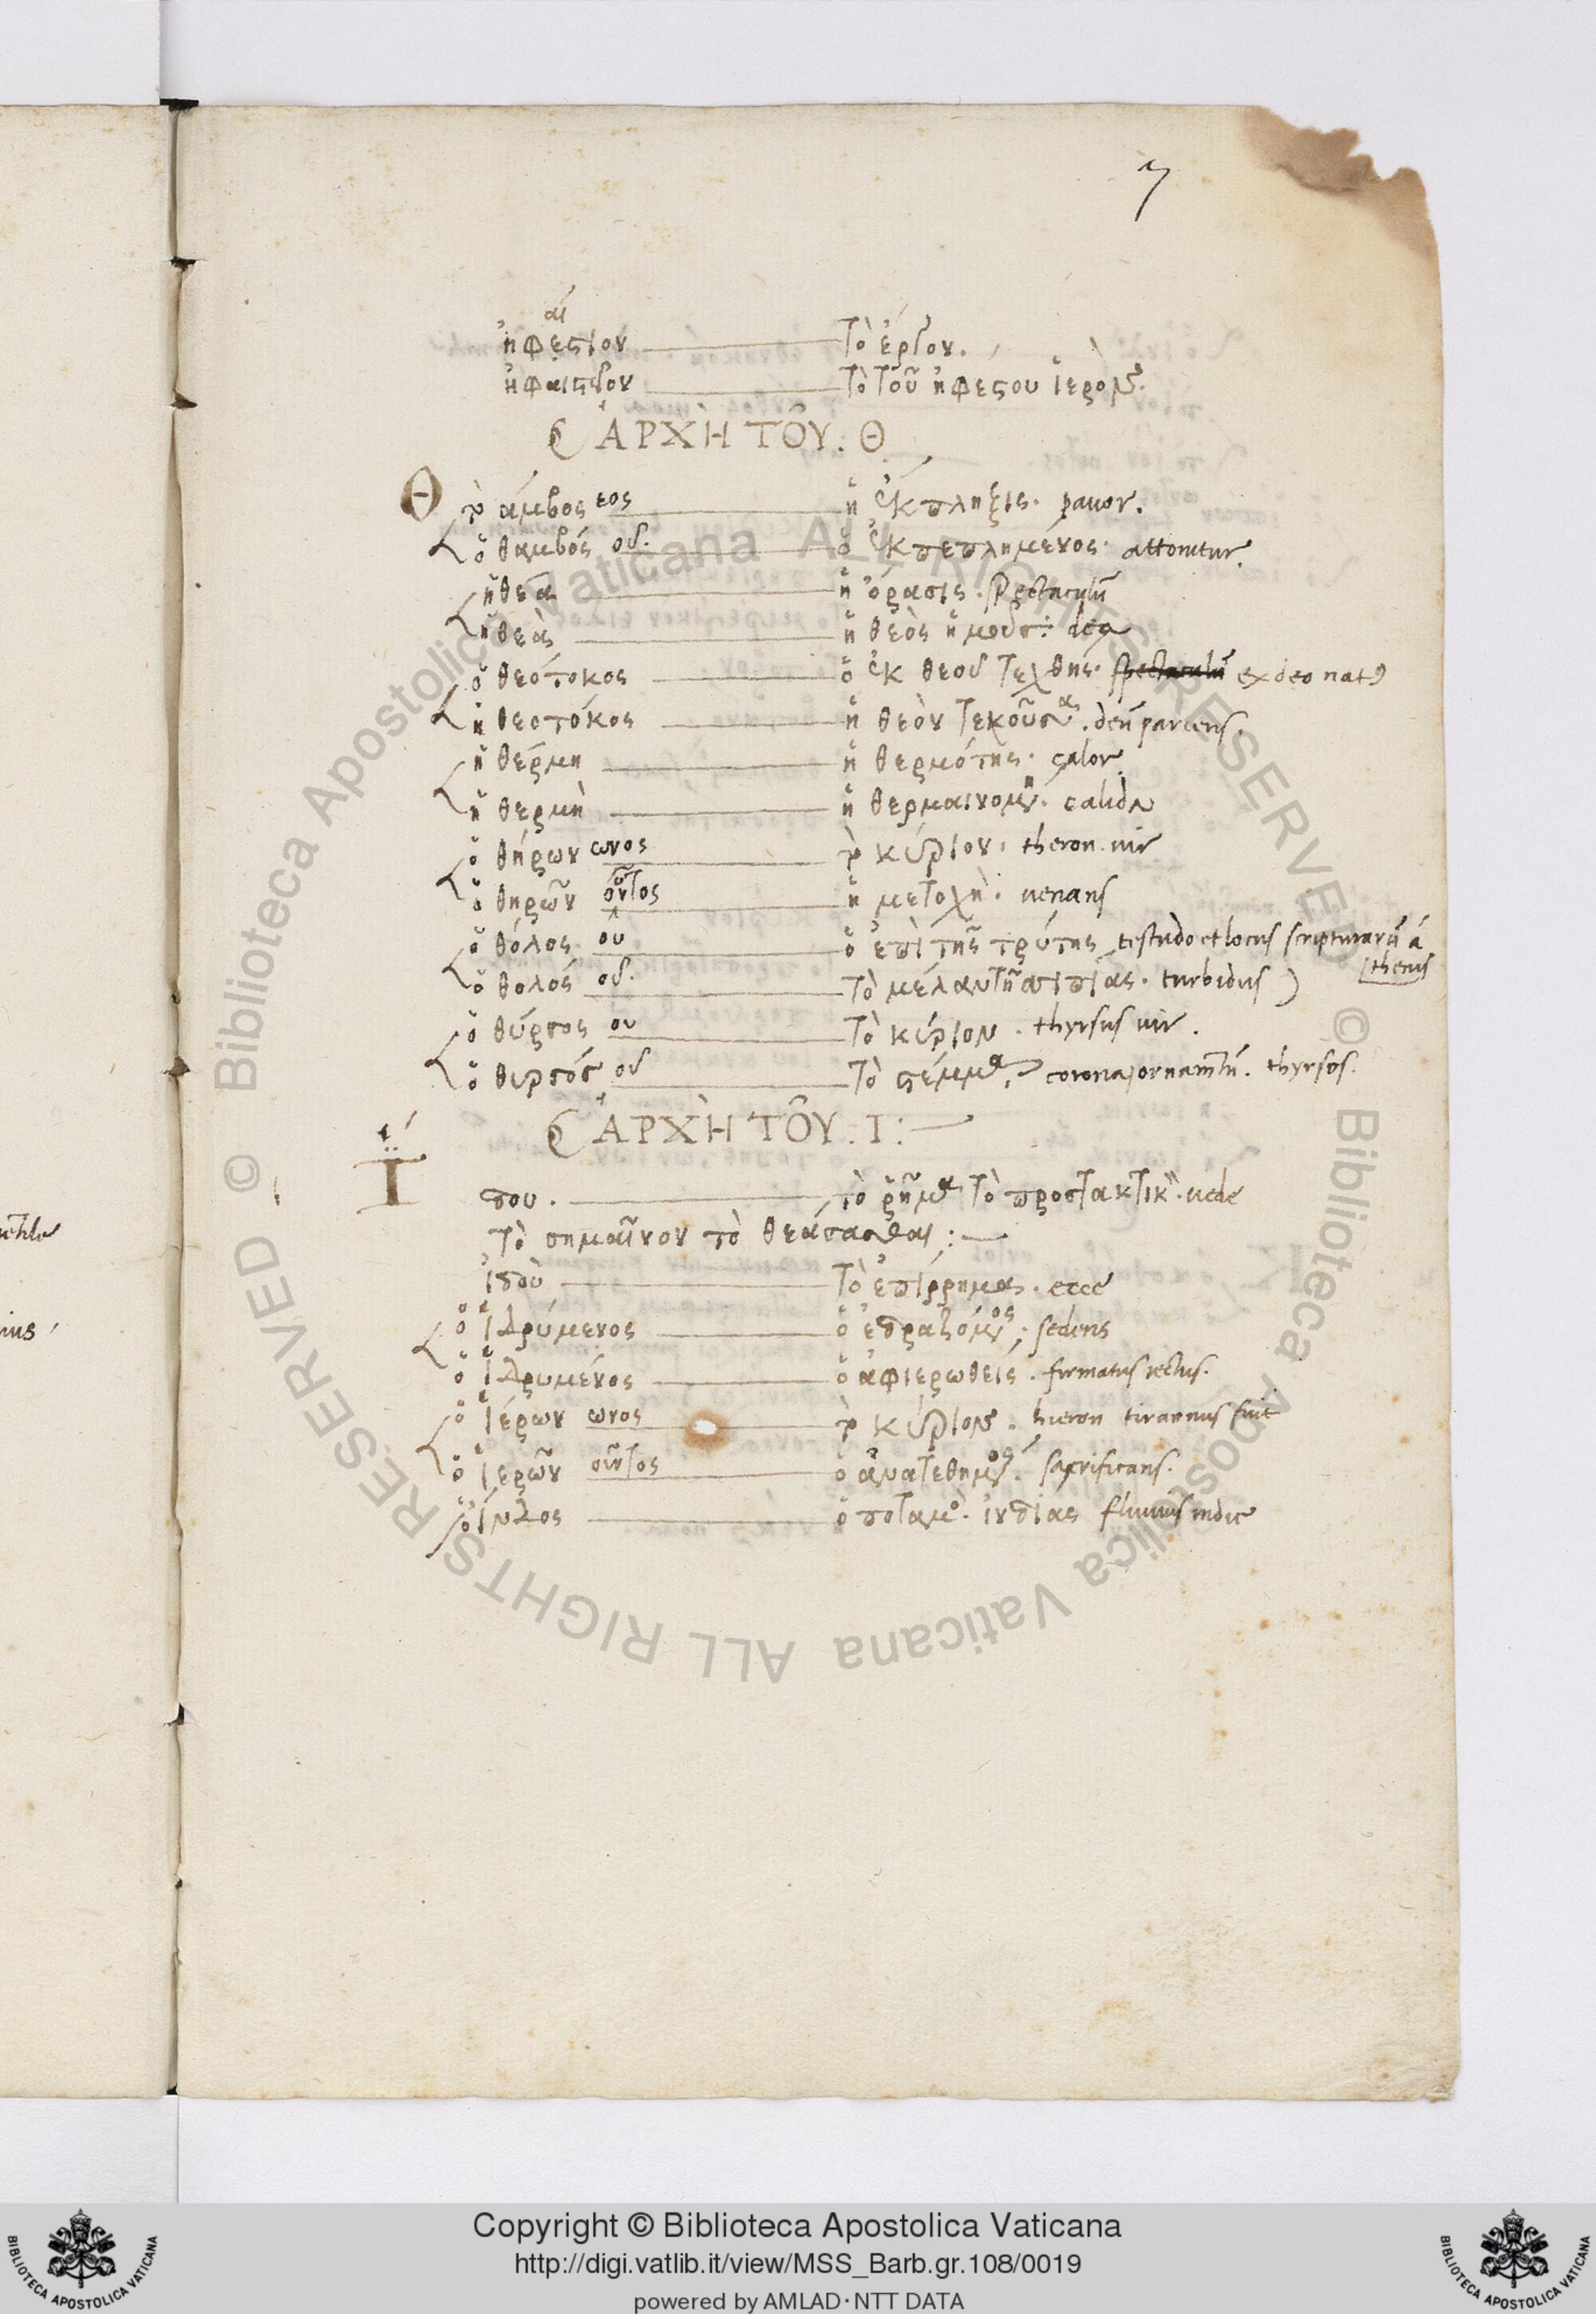 7
αί
ἡφέστιον τὸ ἔργον.
ἡφαιστεῖον τὸ τοῦ ἡφέστου ἱερόν.
ἈΡΧῊ ΤΟΥ͂. Θ
Θ τὸ άμβος εος ἡ ἔκπληξις. pavor.
ὁ θαμβός οῦ. ὁ ἐκπεπλημένος. attonitur.
ἡ θέα ἡ όρασις. spectaculũ
ἡ θεὰ ἡ θεὸς ἡ dea
ὁ θεότοκος ὁ ἐκ θεοῦ τεχθής. spectaculũ ex deo nat9
ἡ θεοτόκος ἡ θεὸν τεκοῦσα. deũ pariens.
ἡ θέρμη ἡ θερμότης. calor
ἡ θερμὴ ἡ θερμαινομένη. calida
ὁ θήρων ωνος τὸ κύριον. theron vir
ὁ θηρῶν οῦντος ἡ μετοχὴ. venans
ὁ θόλος ου ὁ ἐπὶ τῆς τρύτης testudo et locus scripturarũ á
thenis
ὁ θολός οῦ. τὸ μέλαν τῆ σιπίας. turbidus
ὁ θύρσος ου τὸ κύριον. thyrsus vir.
ὁ θυρσός οῦ τὸ στέμμα. corona, ornamtũ. thyrsos.
ἈΡΧῊ ΤΟΥ͂. Ι:
Ι
που. τὸ ῥῆμα τὸ προστακτικὸν. vide
τὸ σημαῖνον τὸ θεάσασθαι:
ἰδοὺ τὸ ἐπίρρημα. ecce
ὁ ἱδρύμενος ὁ ἑδραζόμενος. sedens
ὁ ἱδρυμένος ὁ ἀφιερωθείς. firmatus rectus.
ὁ ἱέρων ωνος τὸ κύριον. hieron tirannus fuit
ὁ ἱερῶν οῦντος ὁ ἀνατεθημένος. sacrificans.
ὁ ἰνδος ὁ ποταμὸ. ἰνδίας fluvius indie
Copyright © Biblioteca Apostolica Vaticana
http://digi.vatlib.it/view/MSS_Barb.gr.108/0019
powered by AMLAD·NTT DATA
BIBLIOTECA APOSTOLICA VATICANA
BIBLIOTECA APOSTOLICA VATICANA
© Biblioteca Apostolica Vaticana ALL RIGHTS RESERVED © Biblioteca Apostolica Vaticana ALL RIGHTS RESERVED